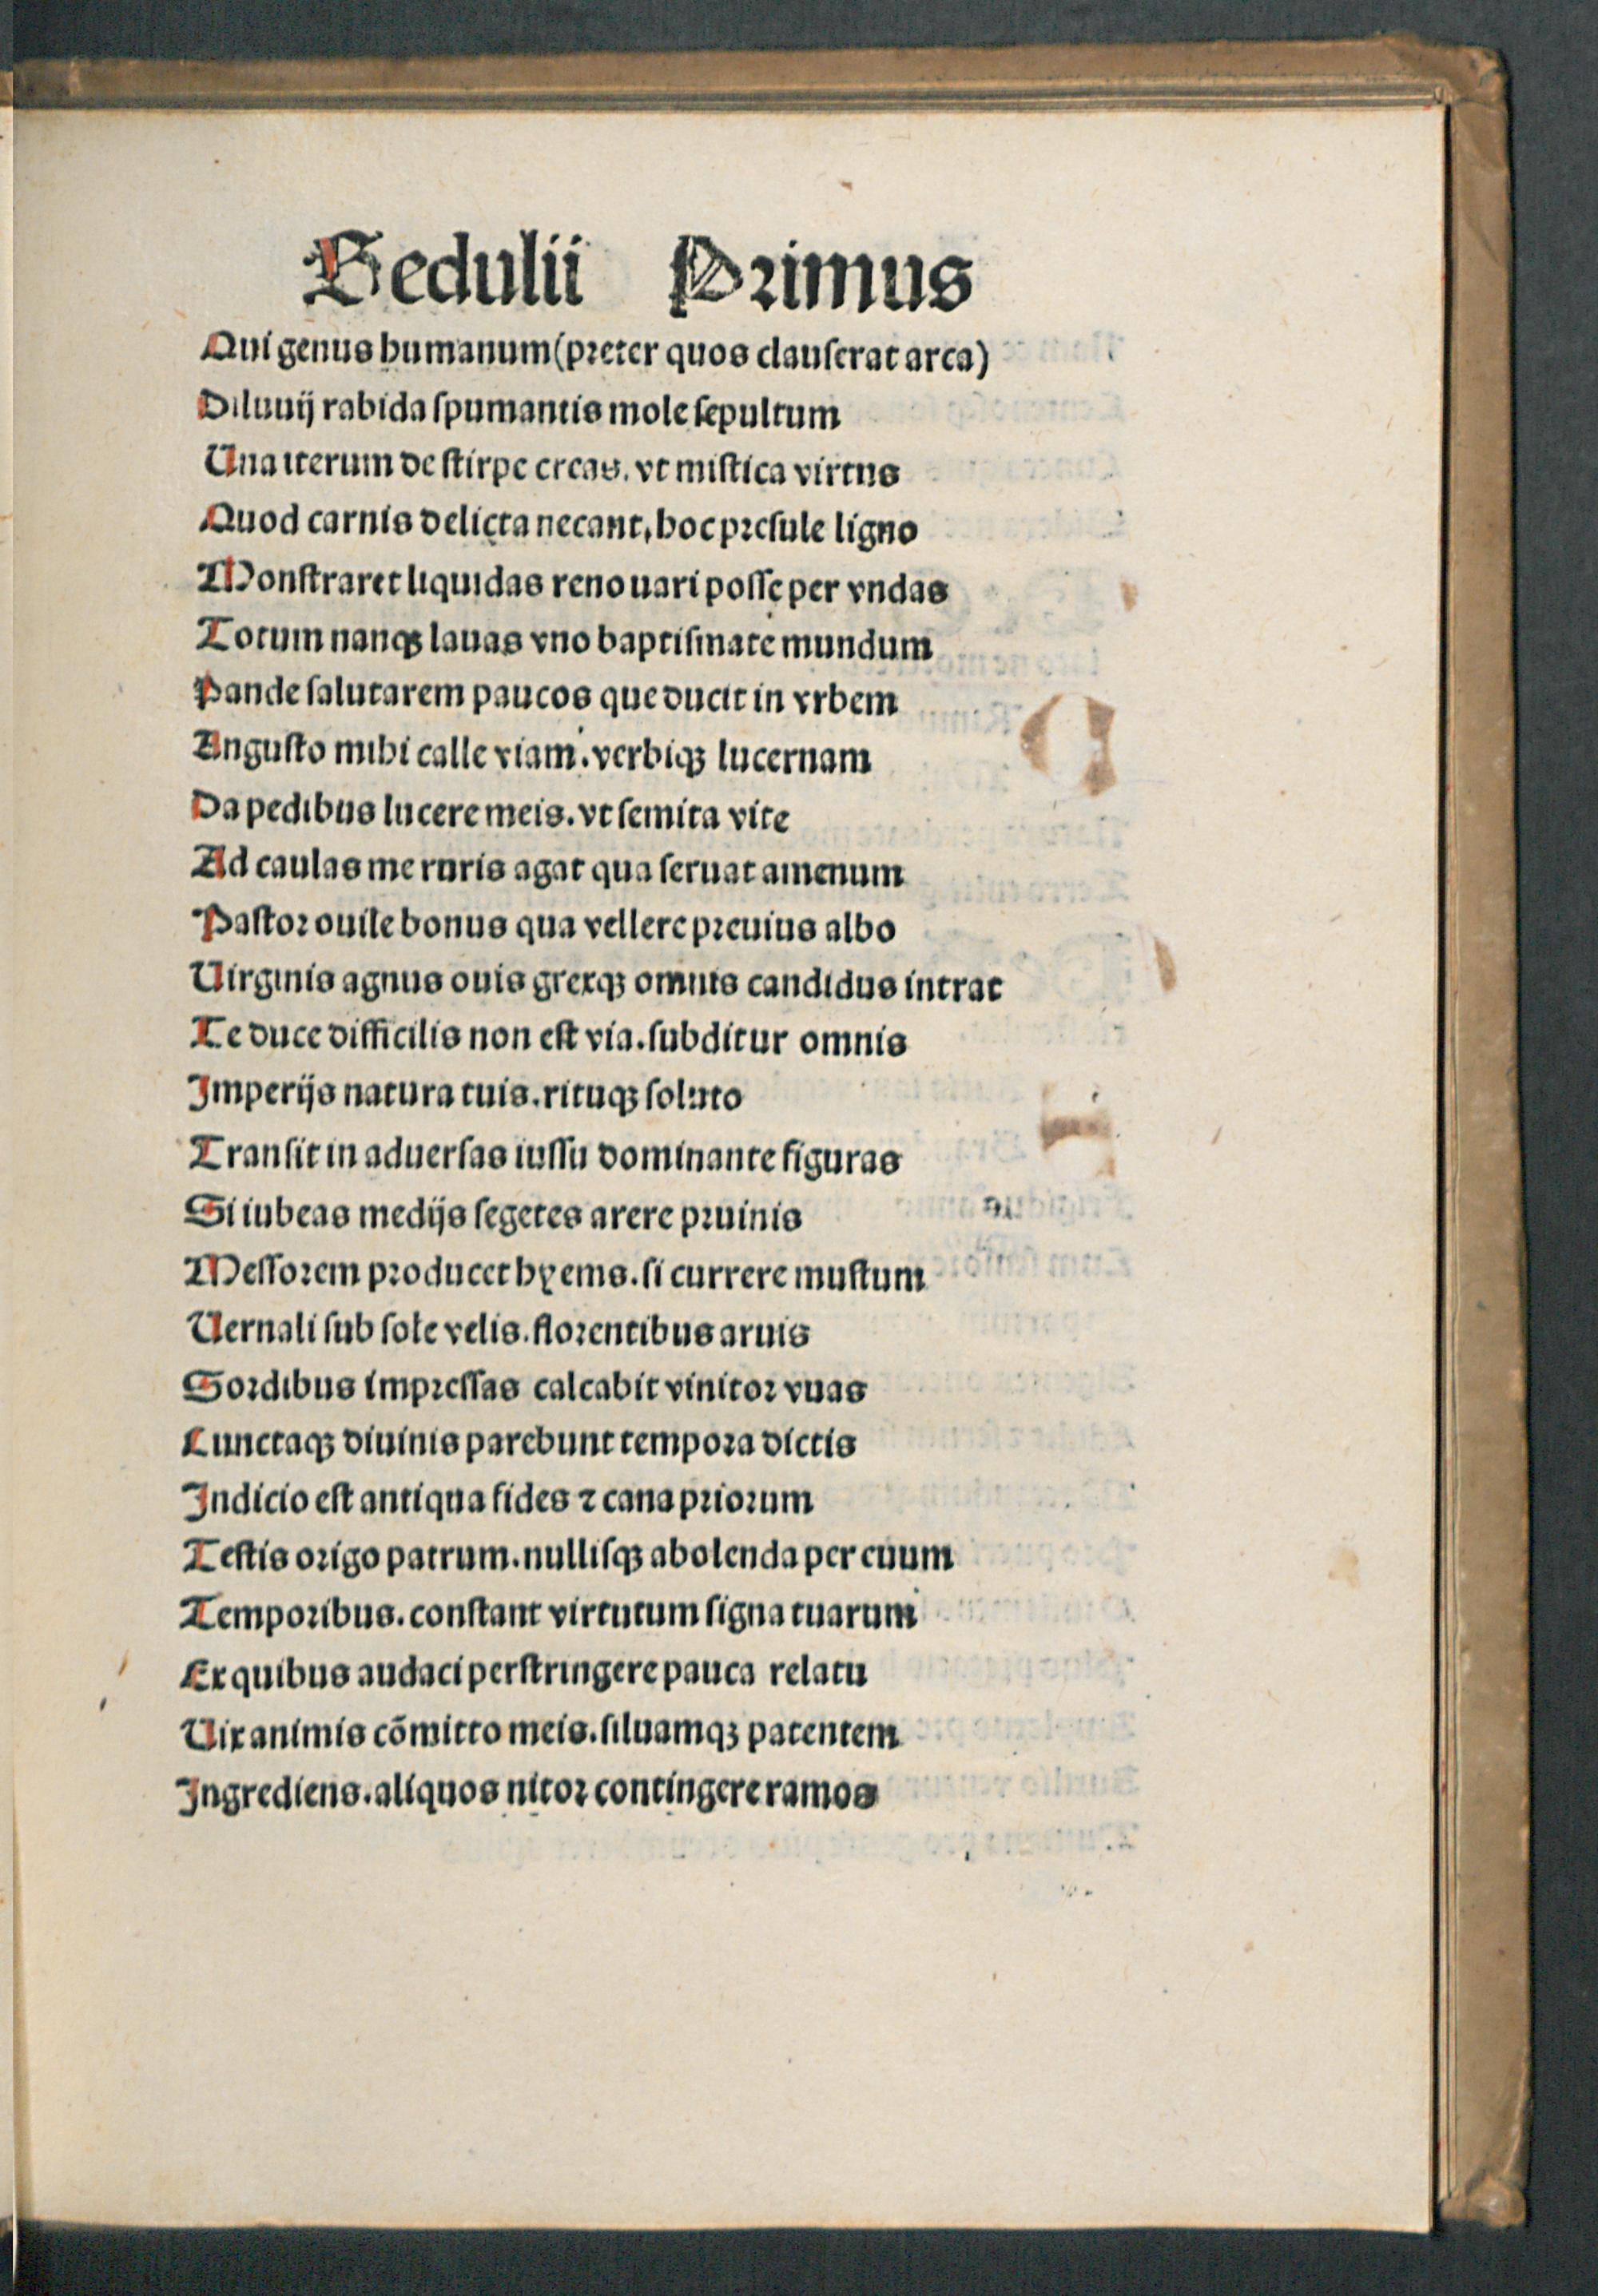 Sedulii Primus
Qui genus humanum (preter quos clauserat arca)
Diluuij rabida spumantis mole sepultum
Una iterum de stirpe creas. vt mistica virtus
Quod carnis delicta necant, hoc presule ligno
Monstraret liquidas renouari posse per vndas
Totum nanqꝫ lauas vno baptismate mundum
Pande salutarem paucos que ducit in vrbem
Angusto mihi calle viam. verbiqꝫ lucernam
Da pedibus lucere meis. vt semita vite
Ad caulas me ruris agat qua seruat amenum
Pastor ouile bonus qua vellere preuius albo
Uirginis agnus ouis grexqꝫ omnis candidus intrat
Te duce difficilis non est via. subditur omnis
Imperijs natura tuis. rituqꝫ soluto
Transit in aduersas iussu dominante figuras
Si iubeas medijs segetes arere pruinis
Messorem producet hyems. si currere mustum
Uernali sub sole velis. florentibus aruis
Sordibus impressas calcabit vinitor vuas
Cunctaqꝫ diuinis parebunt tempora dictis
Indicio est antiqua fides ⁊ cana priorum
Testis origo patrum. nullisqꝫ abolenda per euum
Temporibus. constant virtutum signa tuarum
Ex quibus audaci perstringere pauca relatu
Uix animis cōmitto meis. siluamqꝫ patentem
Ingrediens. aliquos nitor contingere ramos